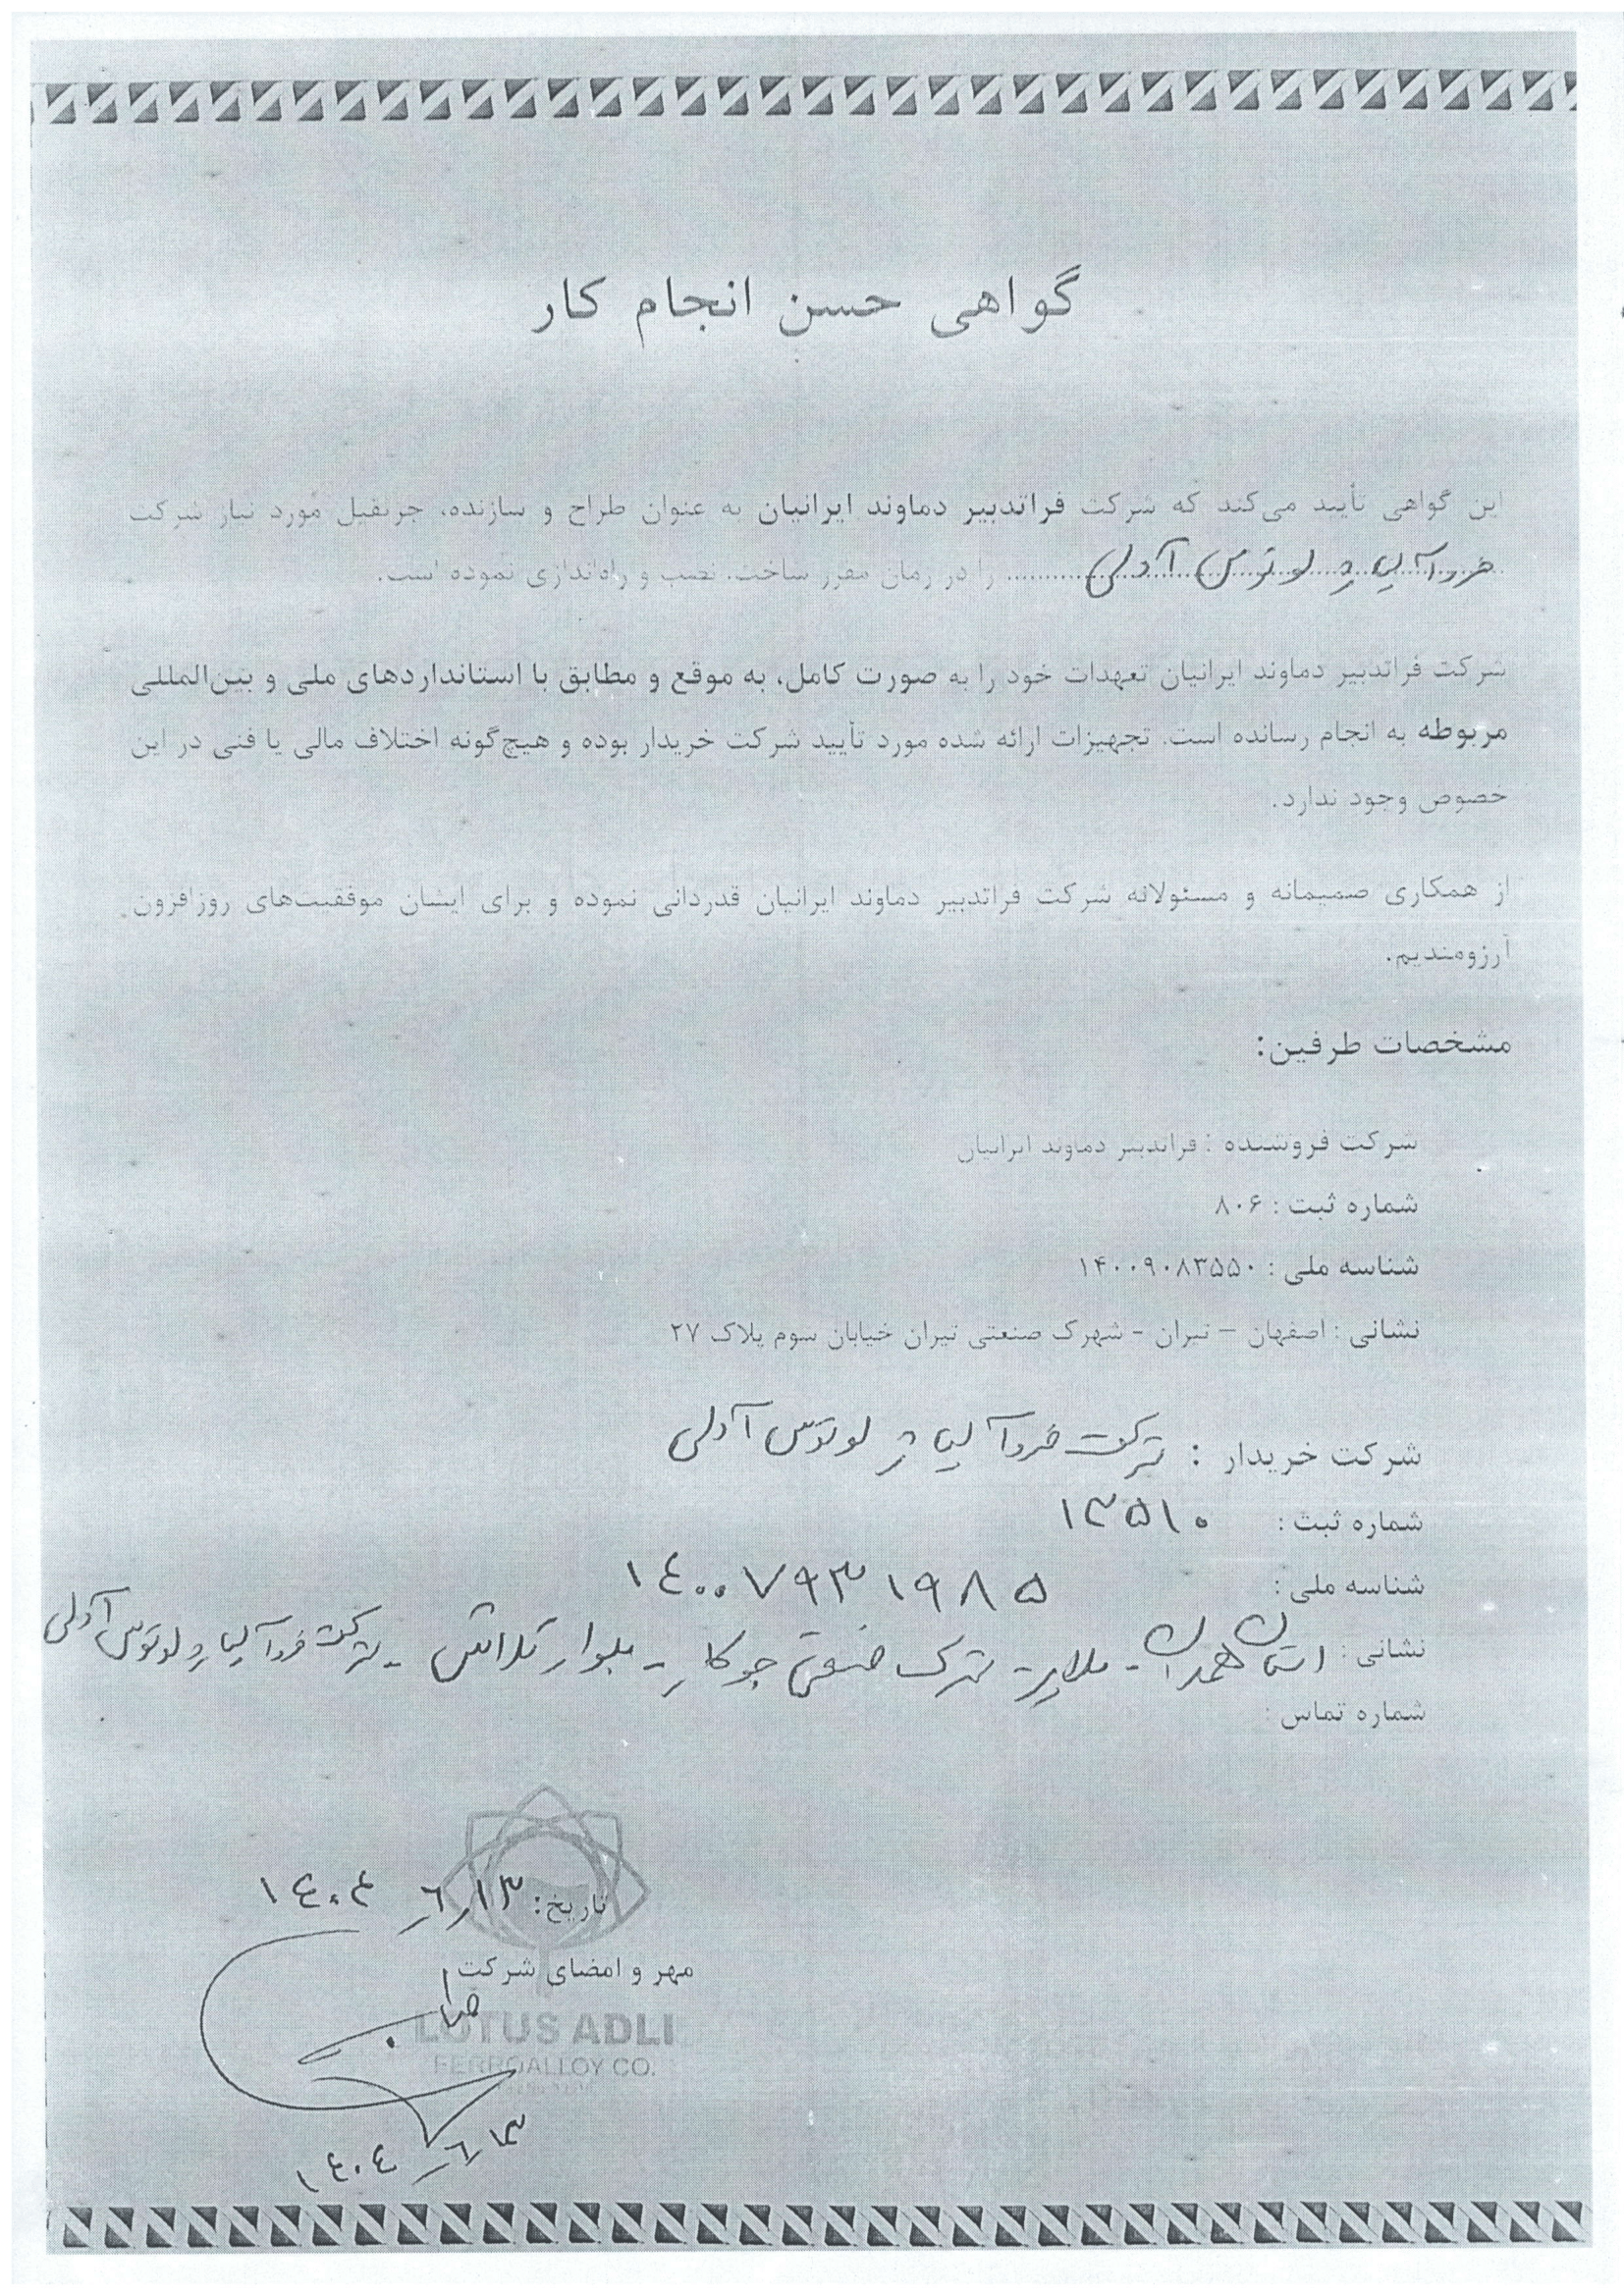 گواهی حسن انجام کار
این گواهی تأیید می‌کند که شرکت فراتدبیر دماوند ایرانیان به عنوان طراح و سازنده، جرثقیل مورد نیاز شرکت
فروآلیاژ لوتوس آدلی را در زمان مقرر ساخت، نصب و راه‌اندازی نموده است.
شرکت فراتدبیر دماوند ایرانیان تعهدات خود را به صورت کامل، به موقع و مطابق با استانداردهای ملی و بین‌المللی
مربوطه به انجام رسانده است. تجهیزات ارائه شده مورد تأیید شرکت خریدار بوده و هیچ‌گونه اختلاف مالی یا فنی در این
خصوص وجود ندارد.
از همکاری صمیمانه و مسئولانه شرکت فراتدبیر دماوند ایرانیان قدردانی نموده و برای ایشان موفقیت‌های روزافزون
آرزومندیم.
مشخصات طرفین:
شرکت فروشنده : فراتدبیر دماوند ایرانیان
شماره ثبت : ۸۰۶
شناسه ملی : ۱۴۰۰۹۰۸۳۵۵۰
نشانی : اصفهان – تیران - شهرک صنعتی تیران خیابان سوم پلاک ۲۷
شرکت خریدار : شرکت فروآلیاژ لوتوس آدلی
شماره ثبت : ۱۳۵۱۰
شناسه ملی : ۱۴۰۰۷۹۳۱۹۸۵
نشانی : استان همدان - ملایر - شهرک صنعتی جوکار - بلوار تلاش - شرکت فروآلیاژ لوتوس آدلی
شماره تماس :
تاریخ: ۱۴۰۴/۶/۱۳
مهر و امضای شرکت
LOTUS ADLI
FERROALLOY CO.
۱۴۰۴/۶/۱۳